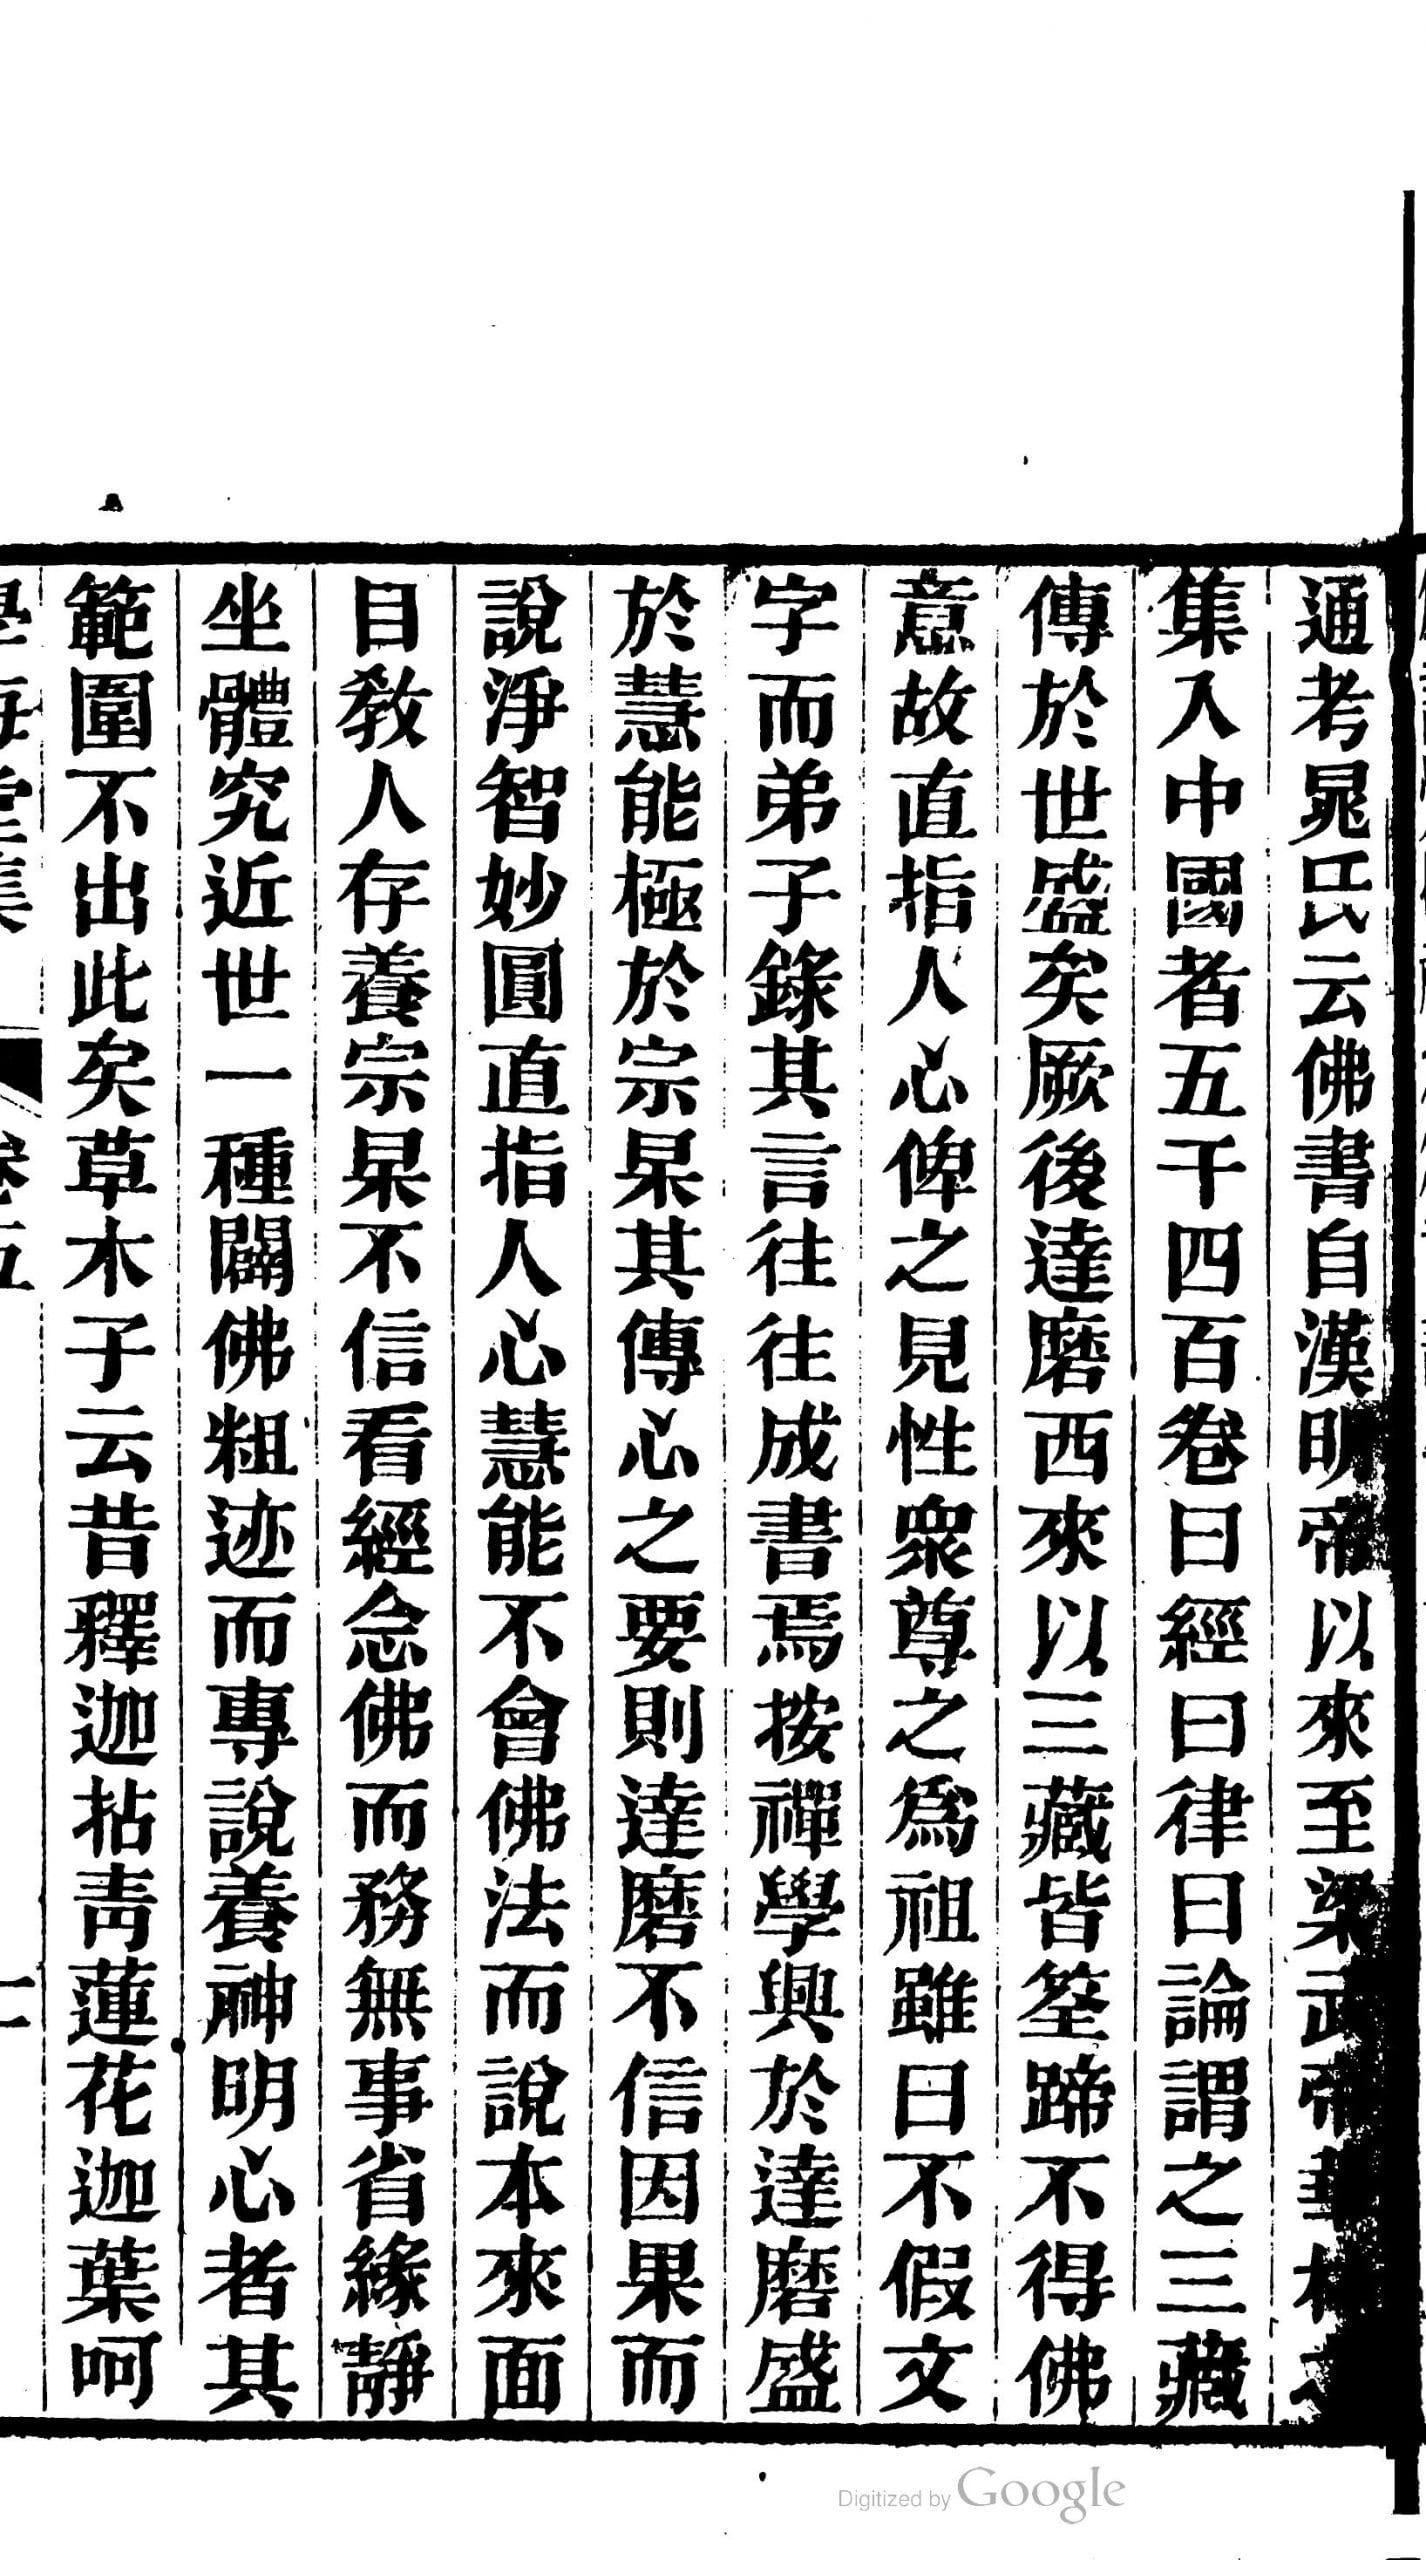 通考晁氏云佛書自漢明帝以來至梁武帝華林之
集入中國者五千四百卷曰經曰律曰論謂之三藏
傳於世盛矣厥後達磨西來以三藏皆筌蹄不得佛
意故直指人心俾之見性衆尊之爲祖雖曰不假文
字而弟子錄其言往往成書焉按禪學興於達磨盛
於慧能極於宗杲其傳心之要則達磨不信因果而
說淨智妙圓直指人心慧能不會佛法而說本來面
目教人存養宗杲不信看經念佛而務無事省緣靜
坐體究近世一種闢佛粗迹而專說養神明心者其
範圍不出此矣草木子云昔釋迦拈青蓮花迦葉呵
學海堂集 卷五
Digitized by Google